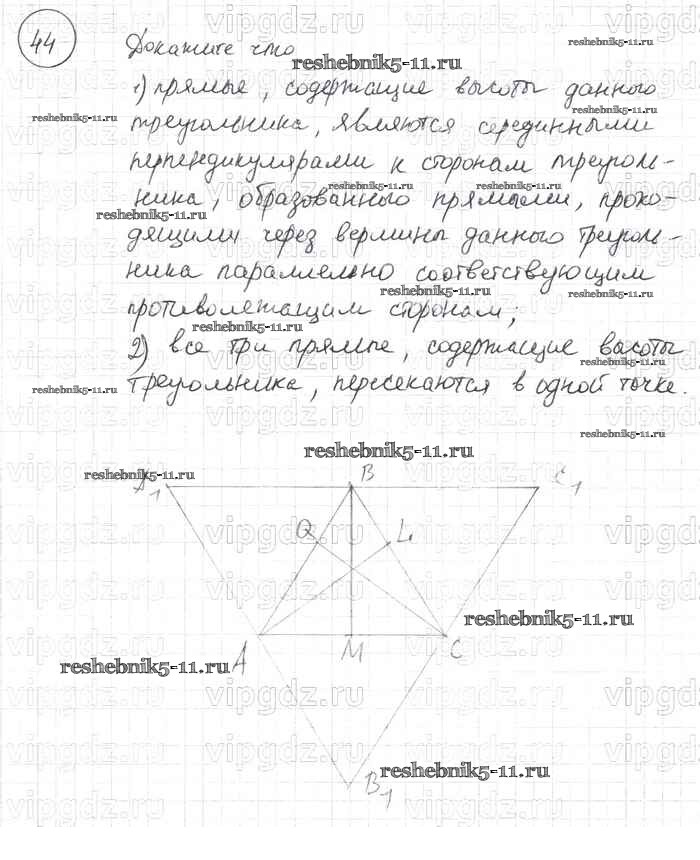 44
Докажите что
1) прямые, содержащие высоты данного
треугольника, являются серединными
перпендикулярами к сторонам треуголь-
ника, образованного прямыми, прохо-
дящими через вершины данного треуголь-
ника параллельно соответствующим
противолежащим сторонам;
2) все три прямые, содержащие высоты
треугольника, пересекаются в одной точке.
A1 B C1
Q L
A M C
B1
reshebnik5-11.ru
vipgdz.ru